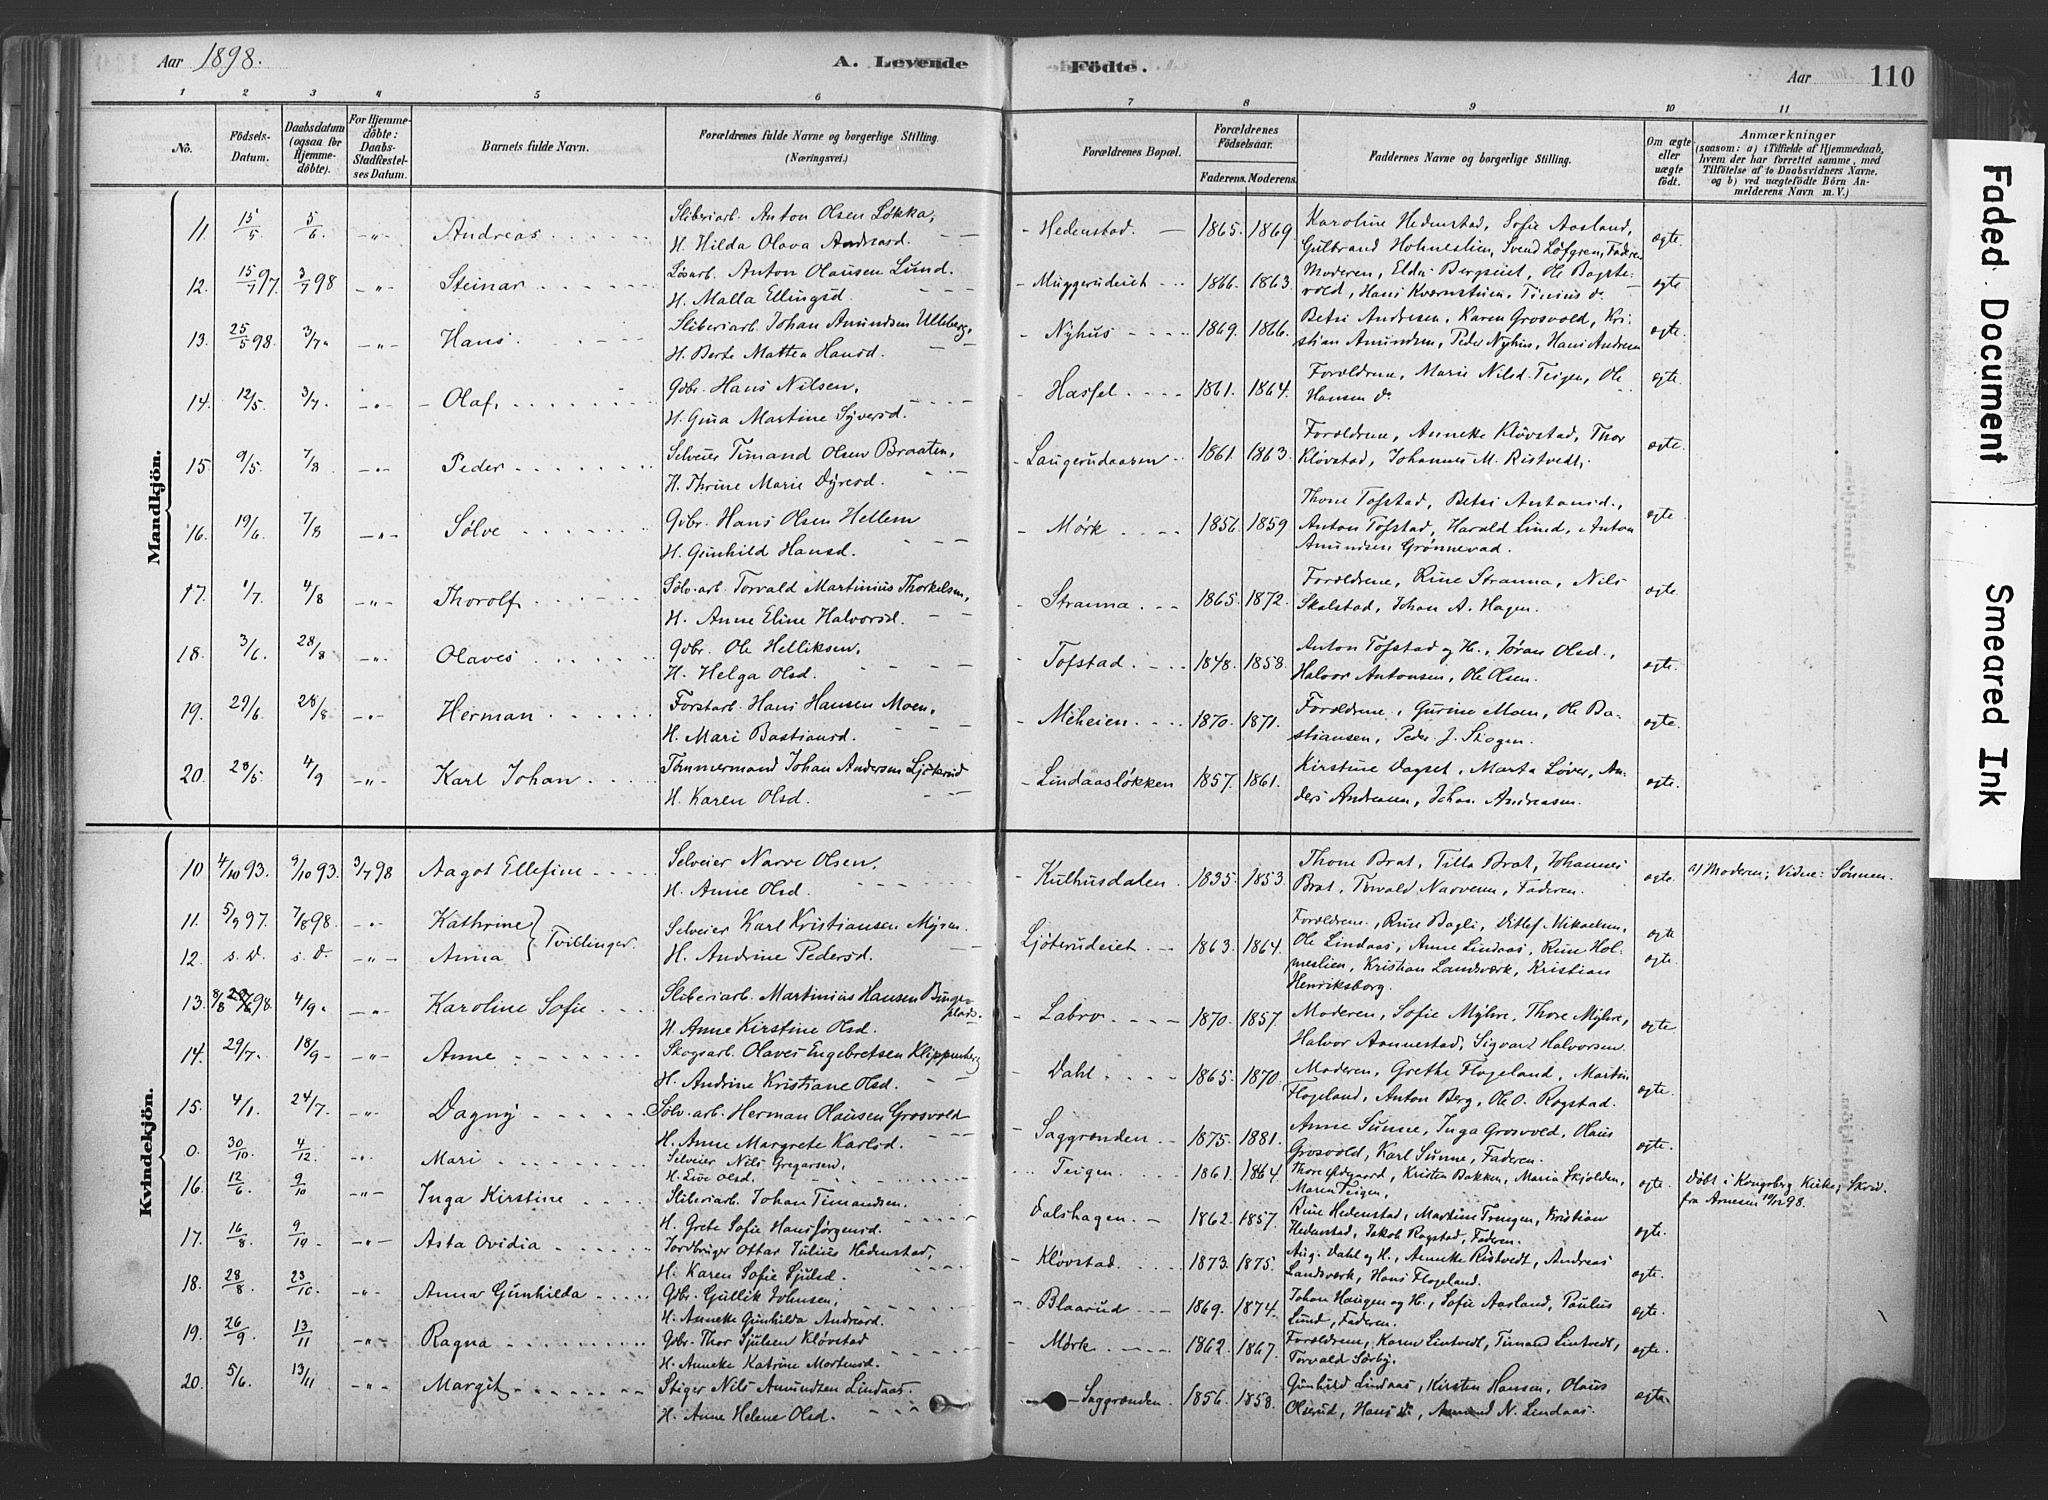 Aar 1898.
A. Levende Födte.
Aar 110
1 2 3 4 5 6 7 8 9 10 11
No.
Födsels-Datum.
Daabsdatum (ogsaa for Hjemmedöbte).
For Hjemmedöbte: Daabs-Stadfæstelses Datum.
Barnets fulde Navn.
Forældrenes fulde Navne og borgerlige Stilling. (Næringsvei.)
Forældrenes Bopæl.
Forældrenes Födselsaar.
Faderens. Moderens.
Faddernes Navne og borgerlige Stilling.
Om ægte eller uægte födt.
Anmærkninger
(saasom: a) i Tilfælde af Hjemmedaab, hvem der har forrettet samme, med Tilföielse af to Daabsvidners Navne. og b) ved uægtefödte Börn Anmelderens Navn m. V.)
Mandkjön.
11. 15/5 5/6 -"- Andreas. Sliberiarb. Anton Olsen Løkka, Hedenstad. 1865. 1869 Karoline Hedenstad, Sofie Aasland, ægte.
H. Hilda Olava Andreasd. Gulbrand Holmeslien, Svend Löfgren, Faderen
12. 15/7 97. 3/7 98 -"- Steinar Løsarb. Anton Olausen Lund. Muggerudeiet 1866. 1863. Moderen, Elda Bergquist, Ole Bagste- ægte.
H. Malla Ellingsd. vold, Hans Kværnstuen, Tinius do.
13. 25/5 98. 3/7 " -"- Hans. Sliberiarb. Johan Amundsen Ulleberg, Nyhus 1869. 1866. Betsi Andresen, Karen Grosvold, Kri- ægte.
H. Berte Mattea Hansd. stian Amundsen, Peder Nyhus, Hans Andresen
14. 12/5. 3/7. -"- Olaf. Gdbr. Hans Nilsen, Hassel. 1861. 1864. Forældrene, Marie Nilsd. Teigen, Ole ægte.
H. Gina Martine Syversd. Hansen do
15. 9/5. 7/8 -"- Peder Selveier Timand Olsen Braaten, Laugerudaasen 1861. 1863. Forældrene, Anneke Kløvstad, Thor ægte.
H. Thrine Marie Dyresd. Kløvstad, Johannes M. Ristvedt,
16. 19/6 7/8 -"- Sølve Gdbr. Hans Olsen Hellem Mørk 1856. 1859 Thone Tofstad, Betsi Antonsd., ægte.
H. Gunhild Hansd. Anton Tofstad, Harald Lund, Anton
Amundsen Grönnevad.
17. 1/7. 4/8 -"- Thorolf Sölvarb. Torvald Martinius Thorkelsen, Stranna 1865. 1872. Forældrene, Rine Stranna, Nils ægte.
H. Anne Eline Halvorsd. Skalstad, Johan A. Hagen.
18. 3/6. 28/8 -"- Olaves Gdbr. Ole Helliksen, Tofstad. 1848. 1858. Anton Tofstad og H., Jøran Olsd., ægte.
H. Helga Olsd. Halvor Antonsen, Ole Olsen.
19. 29/6. 28/8 -"- Herman Forstarb. Hans Hansen Moen. Meheien. 1870. 1871. Forældrene, Gurine Moen, Ole Ba- ægte.
H. Mari Bastiansd. stiansen, Peder J. Skogen.
20. 28/5. 4/9 -"- Karl Johan Tömmermand Johan Andersen Ljøterud Lindaasløkken 1857. 1861. Kirstine Dagset, Marta Løver, An- ægte.
H. Karen Olsd. ders Andresen, Johan Andreasen.
Kvindekjön.
10 4/10 93. 9/10 93. 3/7 98 Aagot Ellefine Selveier Narve Olsen. Kulhusdalen 1835. 1853. Thone Brat, Tilla Brat, Johannes ægte. a) Moderen; Vidne: Sønnen.
H. Anne Olsd. Brat, Torvald Narvesen, Faderen.
11. 5/9 97. 7/8 98. -"- Kathrine } Tvillinger Selveier Karl Kristiansen Myren. Ljøterudeiet 1863. 1864 Forældrene, Rine Bagli, Ditlef Mikaelsen, ægte
12. s. D. s. D. -"- Anna H. Andrine Pedersd. Ole Lindaas, Anne Lindaas, Rine Hol- ægte.
meslien, Kristian Landsverk, Kristian
Henriksborg.
13. 8/8 98. 4/9 " -"- Karoline Sofie Sliberiarb. Martinius Hansen Bingeplads. Labro 1870. 1857. Moderen, Sofie Myhre, Thore Myhre, ægte.
H. Anne Kirstine Olsd. Halvor Aannestad, Sigvart Halvorsen.
14. 29/7. 18/9 -"- Anne Skogsarb. Olaves Engebretsen Klippenberg Dahl 1865. 1870. Moderen, Grethe Flogeland, Martin ægte.
H. Andrine Kristiane Olsd. Flogeland, Anton Berg, Ole O. Rogstad.
15. 4/1. 24/7. -"- Dagny Sölvarb. Herman Olausen Grosvold Saggrenden 1875. 1881. Anne Sunne, Inga Grosvold, Olaus ægte.
H. Anne Margrete Karlsd. Grosvold, Karl Sunne, Faderen.
0. 30/10 4/12. -"- Mari Selveier Nils Gregarsen, Teigen. 1861. 1864 Thore Ødegaard, Kristen Bakken, Maria Skjolden, ægte. Døbt i Kongsberg Kirke, Skriv.
H. Live Olsd. Maren Teigen, fra Arnesen 19/12 98.
16. 12/6. 9/10 -"- Inga Kirstine Sliberiarb. Johan Timandsen. Dalshagen. 1862. 1857. Rine Hedenstad, Martine Trengen, Kristian ægte.
H. Grete Sofie Hans Jørgensd. Hedenstad, Jakob Rogstad, Faderen.
17. 16/8 9/10 -"- Asta Ovidia Jordbruger Ottar Julius Hedenstad, Kløvstad. 1873. 1875. Aug. Dahl og H., Anneke Ristvedt, Andreas ægte.
H. Karen Sofie Sjulsd. Landsverk, Hans Flogeland.
18. 28/8 23/10 -"- Anna Gunhilda Gdbr. Gullik Johnsen, Blaarud 1869. 1874. Johan Haugen og H., Sofie Aasland, Paulus ægte.
H. Anneke Gunhilda Andreasd. Lund, Faderen.
19. 26/9 13/11 -"- Ragna Gdbr. Thor Sjulsen Kløvstad Mørk. 1862. 1867. Forældrene, Karen Lintvedt, Timand Lintvedt, ægte.
H. Anneke Katrine Mortensd. Torvald Sørby.
20. 5/6. 13/11 -"- Margit Stiger Nils Amundsen Lindaas. Saggrenden. 1856. 1858. Gunhild Lindaas, Kirsten Hansen, Olaus ægte.
H. Anne Helene Olsd. Olserud, Hans do, Amund N. Lindaas.
Faded Document
Smeared Ink